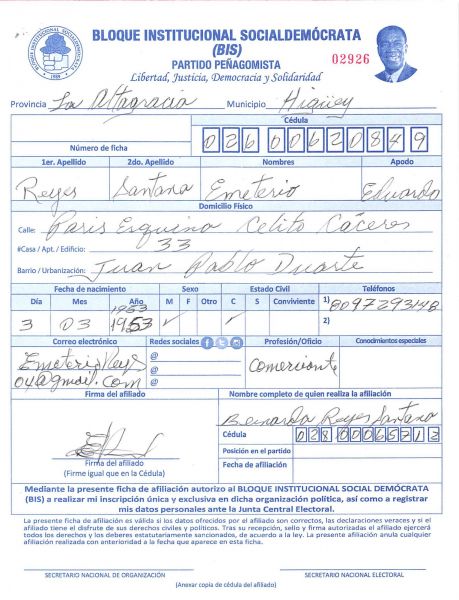 BLOQUE INSTITUCIONAL SOCIALDEMÓCRATA
(BIS)
PARTIDO PEÑAGOMISTA
02926
Libertad, Justicia, Democracia y Solidaridad
Provincia La Altagracia Municipio Higüey
Cédula
Número de ficha 026 0062084 9
1er. Apellido 2do. Apellido Nombres Apodo
Reyes Santana Emeterio Eduardo
Domicilio Físico
Calle: Paris Esquina Celito Cáceres
#Casa / Apt. / Edificio: 33
Barrio / Urbanización: Juan Pablo Duarte
Fecha de nacimiento Sexo Estado Civil Teléfonos
Día Mes Año M F Otro C S Conviviente 1) 8097293148
1953
3 03 1953 ✓ ✓ 2)
Correo electrónico Redes sociales Profesión/Oficio Conocimientos especiales
Emeterio Reyes @ Comerciante
04@gmail.com @
@
Firma del afiliado Nombre completo de quien realiza la afiliación
Bernardo Reyes Santana
Cédula 028 0006571 2
Posición en el partido
Firma del afiliado Fecha de afiliación
(Firme igual que en la Cédula)
Mediante la presente ficha de afiliación autorizo al BLOQUE INSTITUCIONAL SOCIAL DEMÓCRATA
(BIS) a realizar mi inscripción única y exclusiva en dicha organización política, así como a registrar
mis datos personales ante la Junta Central Electoral.
La presente ficha de afiliación es válida si los datos ofrecidos por el afiliado son correctos, las declaraciones veraces y si el
afiliado tiene el disfrute de sus derechos civiles y políticos. Tras su recepción, sello y firma autorizadas el afiliado ejercerá
todos los derechos y los deberes estatutariamente sancionados, de acuerdo a la ley. La presente afiliación anula cualquier
afiliación realizada con anterioridad a la fecha que aparece en esta ficha.
SECRETARIO NACIONAL DE ORGANIZACIÓN SECRETARIO NACIONAL ELECTORAL
(Anexar copia de cédula del afiliado)